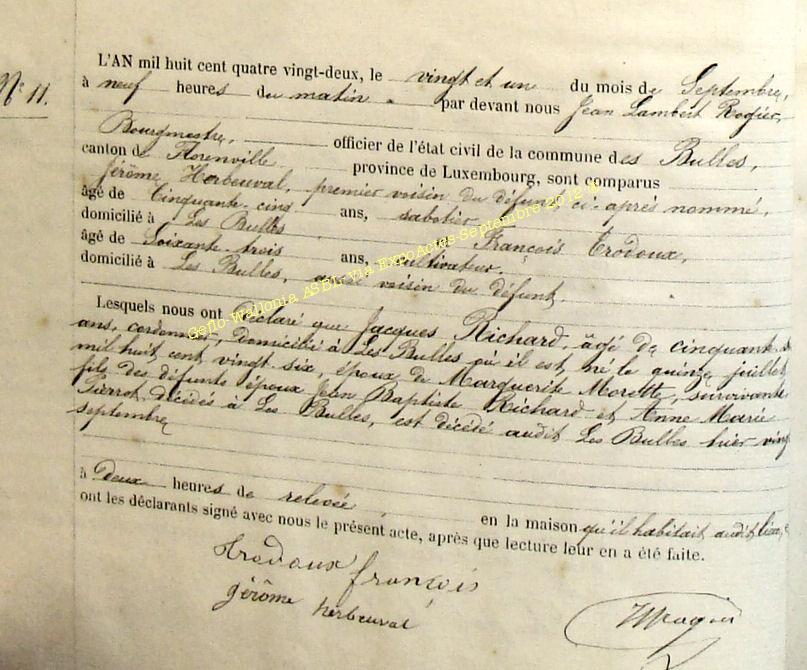 N° 11.
L'AN mil huit cent quatre vingt-deux, le vingt et un du mois de Septembre,
à neuf heures du matin par devant nous Jean Lambert Rogier,
Bourgmestre, officier de l'état civil de la commune des Bulles,
canton de Florenville province de Luxembourg, sont comparus
Jérôme Herbeuval, premier voisin du défunt ci-après nommé,
âgé de Cinquante-cinq ans, sabotier
domicilié à Les Bulles François Trodoux,
âgé de Soixante-trois ans, cultivateur,
domicilié à Les Bulles, voisin du défunt.
Lesquels nous ont déclaré que Jacques Richard, âgé de cinquante
ans, cordonnier, domicilié à Les Bulles où il est né le quinze juillet
mil huit cent vingt-six, époux de Marguerite Morette, survivante,
fils des défunts époux Jean Baptiste Richard et Anne Marie
Pierrot, décédés à Les Bulles, est décédé audit Les Bulles hier vingt
septembre
à deux heures de relevée, en la maison qu'il habitait audit lieu, et
ont les déclarants signé avec nous le présent acte, après que lecture leur en a été faite.
trodoux françois
jérôme herbeuval
Geno-Wallonia ASBL via ExpoActes-Septembre 2012